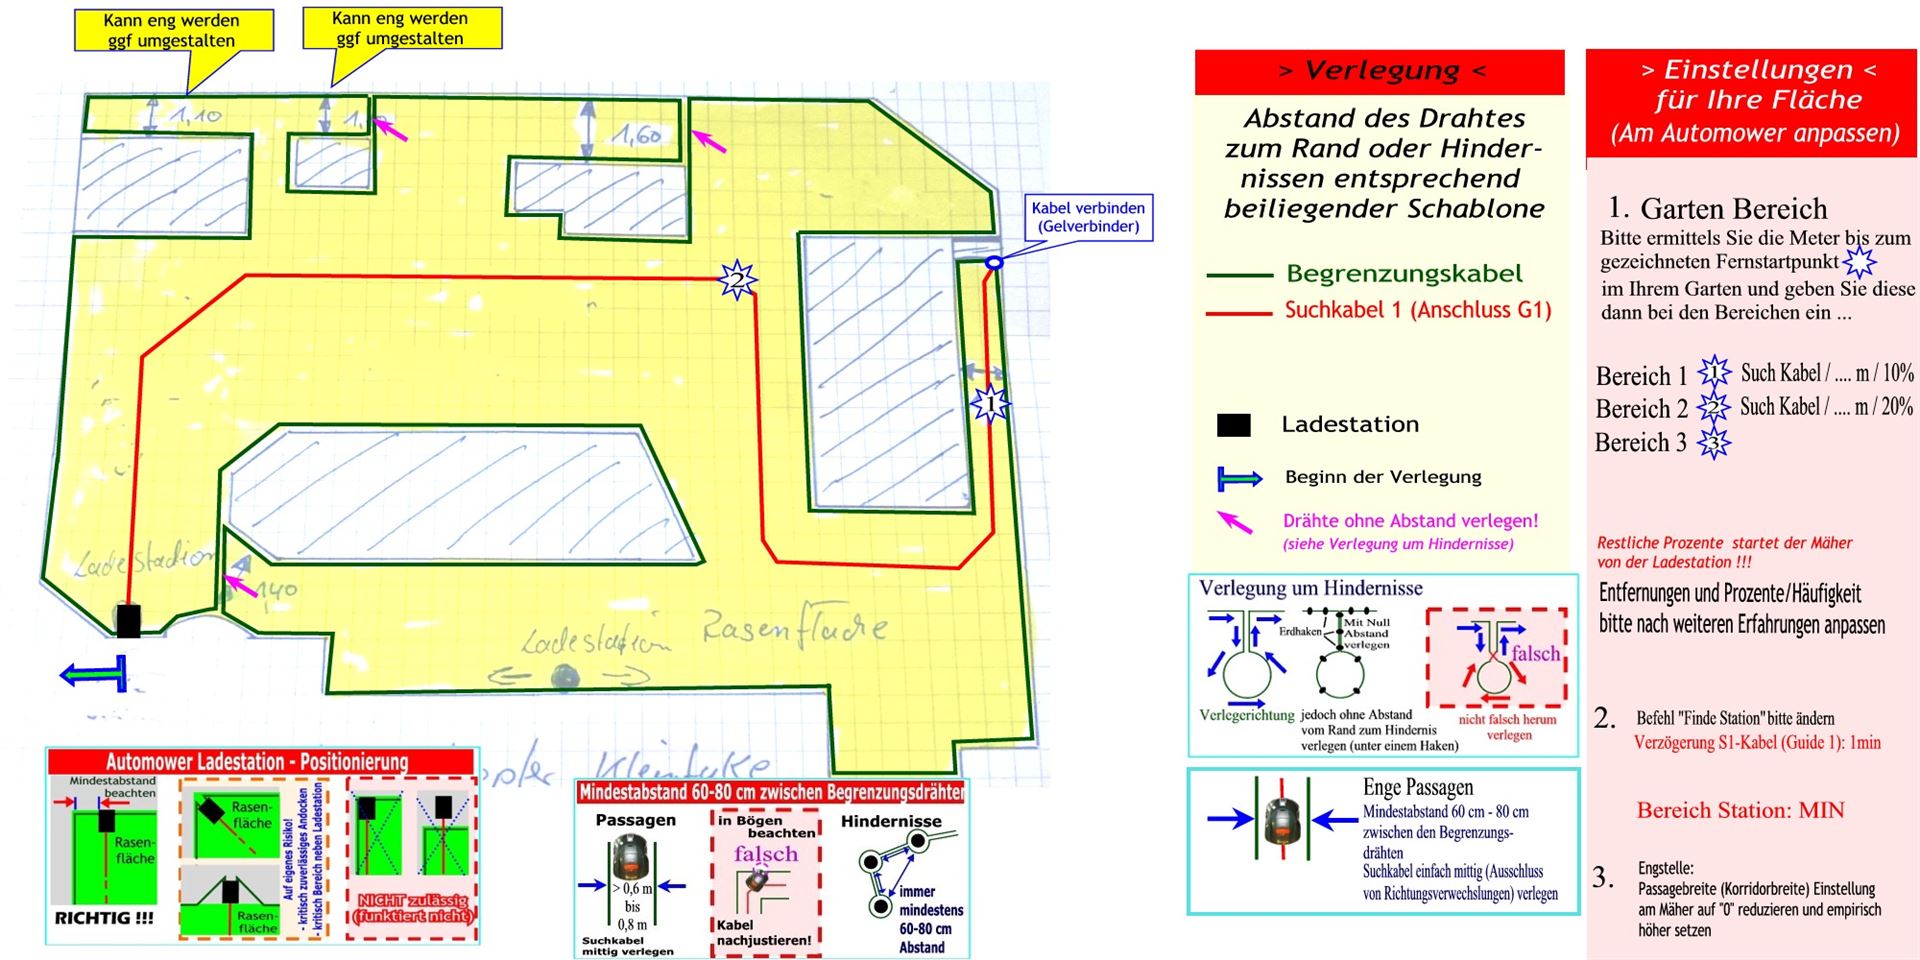 Kann eng werden
ggf umgestalten
Kann eng werden
ggf umgestalten
1,10
1,60
Kabel verbinden
(Gelverbinder)
2
1
Ladestadion
140
Ladestadion
Rasenfläche
> Verlegung <
Abstand des Drahtes
zum Rand oder Hinder-
nissen entsprechend
beiliegender Schablone
Begrenzungskabel
Suchkabel 1 (Anschluss G1)
Ladestation
Beginn der Verlegung
Drähte ohne Abstand verlegen!
(siehe Verlegung um Hindernisse)
Verlegung um Hindernisse
Erdhaken
Mit Null
Abstand
verlegen
falsch
Verlegerichtung
jedoch ohne Abstand
vom Rand zum Hindernis
verlegen (unter einem Haken)
nicht falsch herum
verlegen
Enge Passagen
Mindestabstand 60 cm - 80 cm
zwischen den Begrenzungs-
drähten
Suchkabel einfach mittig (Ausschluss
von Richtungsverwechslungen) verlegen
> Einstellungen <
für Ihre Fläche
(Am Automower anpassen)
1. Garten Bereich
Bitte ermittels Sie die Meter bis zum
gezeichneten Fernstartpunkt
im Ihrem Garten und geben Sie diese
dann bei den Bereichen ein ...
Bereich 1 1 Such Kabel / .... m / 10%
Bereich 2 2 Such Kabel / .... m / 20%
Bereich 3 3
Restliche Prozente startet der Mäher
von der Ladestation !!!
Entfernungen und Prozente/Häufigkeit
bitte nach weiteren Erfahrungen anpassen
2. Befehl "Finde Station" bitte ändern
Verzögerung S1-Kabel (Guide 1): 1min
Bereich Station: MIN
3. Engstelle:
Passagebreite (Korridorbreite) Einstellung
am Mäher auf "0" reduzieren und empirisch
höher setzen
Automower Ladestation - Positionierung
Mindestabstand
beachten
Rasen-
fläche
RICHTIG !!!
Rasen-
fläche
Rasen-
fläche
Auf eigenes Risiko!
- kritisch zuverlässiges Andocken
- kritisch Bereich neben Ladestation
NICHT zulässig
(funktiert nicht)
Mindestabstand 60-80 cm zwischen Begrenzungsdrähten
Passagen
> 0,6 m
bis
0,8 m
Suchkabel
mittig verlegen
in Bögen
beachten
falsch
Kabel
nachjustieren!
Hindernisse
immer
mindestens
60-80 cm
Abstand